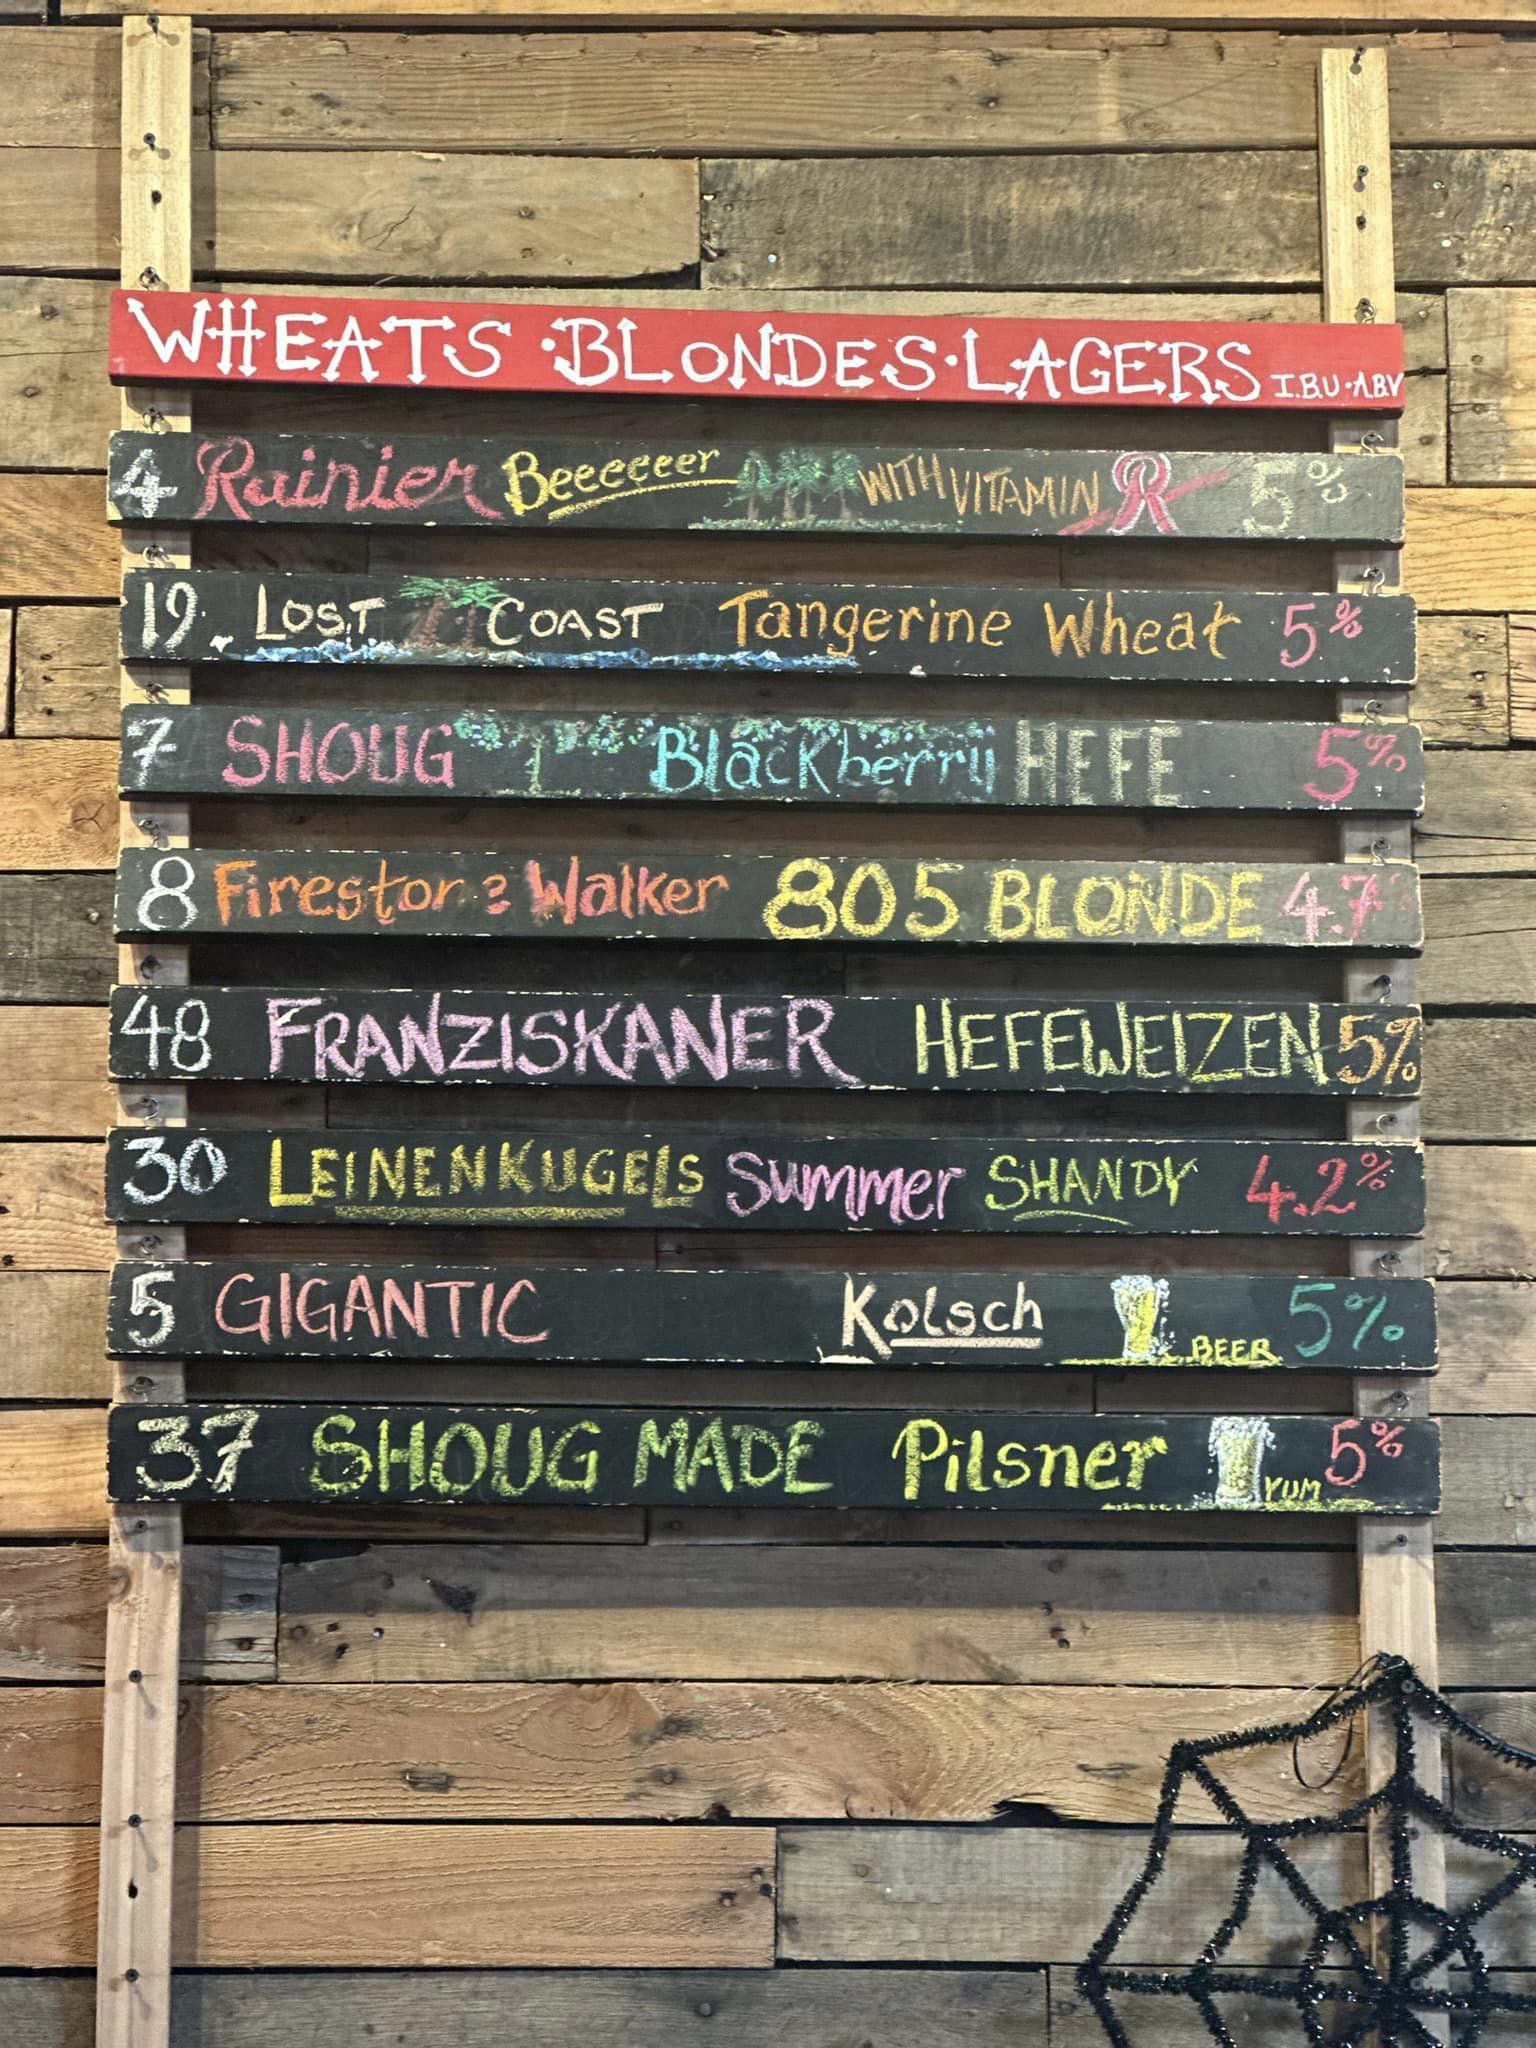 WHEATS · BLONDES · LAGERS I.B.U · A.B.V
4 Rainier Beeeeeer WITH VITAMIN R 5%
19 LOST COAST Tangerine Wheat 5%
7 SHOUG Blackberry HEFE 5%
8 Firestor : Walker 805 BLONDE 4.7
48 FRANZISKANER HEFEWEIZEN 5%
30 LEINENKUGELS Summer SHANDY 4.2%
5 GIGANTIC Kolsch BEER 5%
37 SHOUG MADE Pilsner YUM 5%